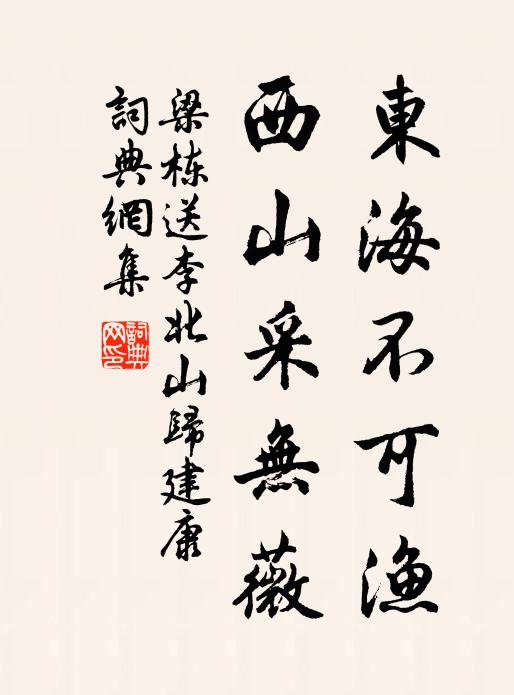 東海不可漁
西山采無薇
梁栋送李北山歸建康
詞典網集
詞典网印